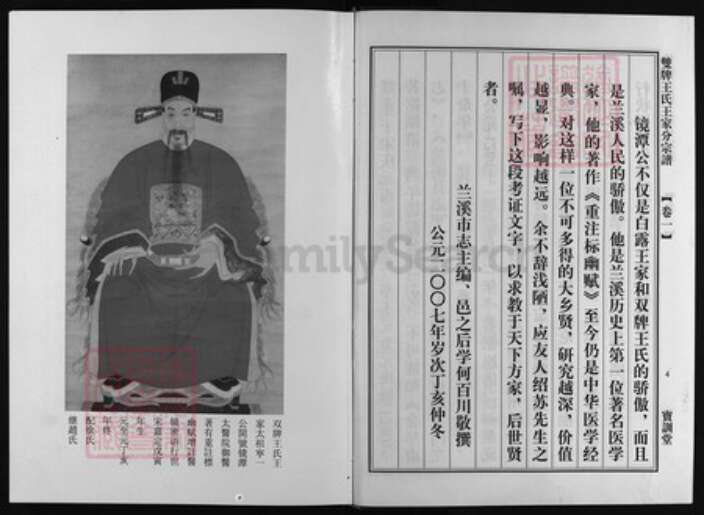 雙牌王氏王家分宗譜
【卷一】
4
寶訓堂
镜潭公不仅是白露王家和双牌王氏的骄傲，而且
是兰溪人民的骄傲。他是兰溪历史上第一位著名医学
家，他的著作《重注标幽赋》至今仍是中华医学经
典。对这样一位不可多得的大乡贤，研究越深，价值
越显，影响越远。余不辞浅陋，应友人绍苏先生之
嘱，写下这段考证文字，以求教于天下方家，后世贤
者。
兰溪市志主编、邑之后学何百川敬撰
公元二〇〇七年岁次丁亥仲冬
双牌王氏王
家太祖寧一
公開號镜潭
太醫院御醫
著有重註標
幽賦增註醫
宋嘉定戊寅
年生
元至元丁亥
年終
配徐氏
繼趙氏
FamilySearch